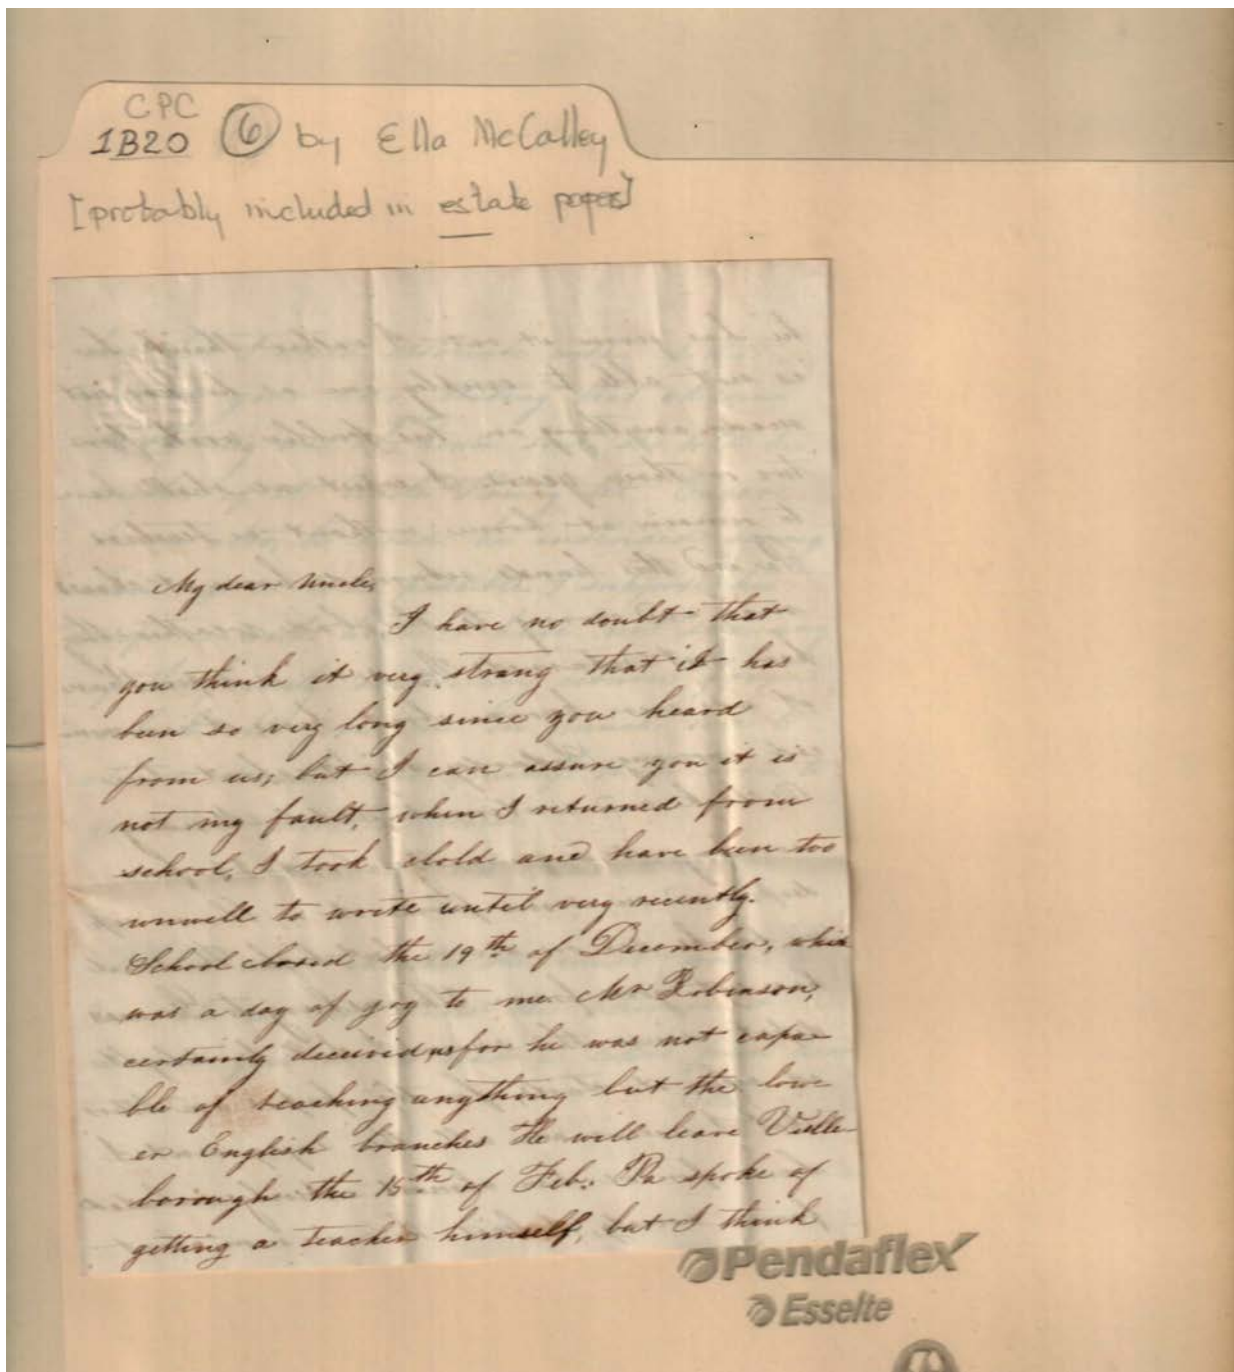 CPC
1B20 6 by Ella McCalley
[probably included in estate papers]
My dear Uncle,
I have no doubt that
you think it very strang that it has
been so very long since you heard
from us; but I can assure you it is
not my fault, when I returned from
school, I took cold and have been too
unwell to write until very recently.
School closed the 19th of December, which
was a day of joy to me Mr Robinson,
certainly deceived us for he was not capa-
ble of teaching anything but the low
er English branches He will leave Ville-
borough the 15th of Feb: Pa spoke of
getting a teacher himself, but I think
Pendaflex
Esselte